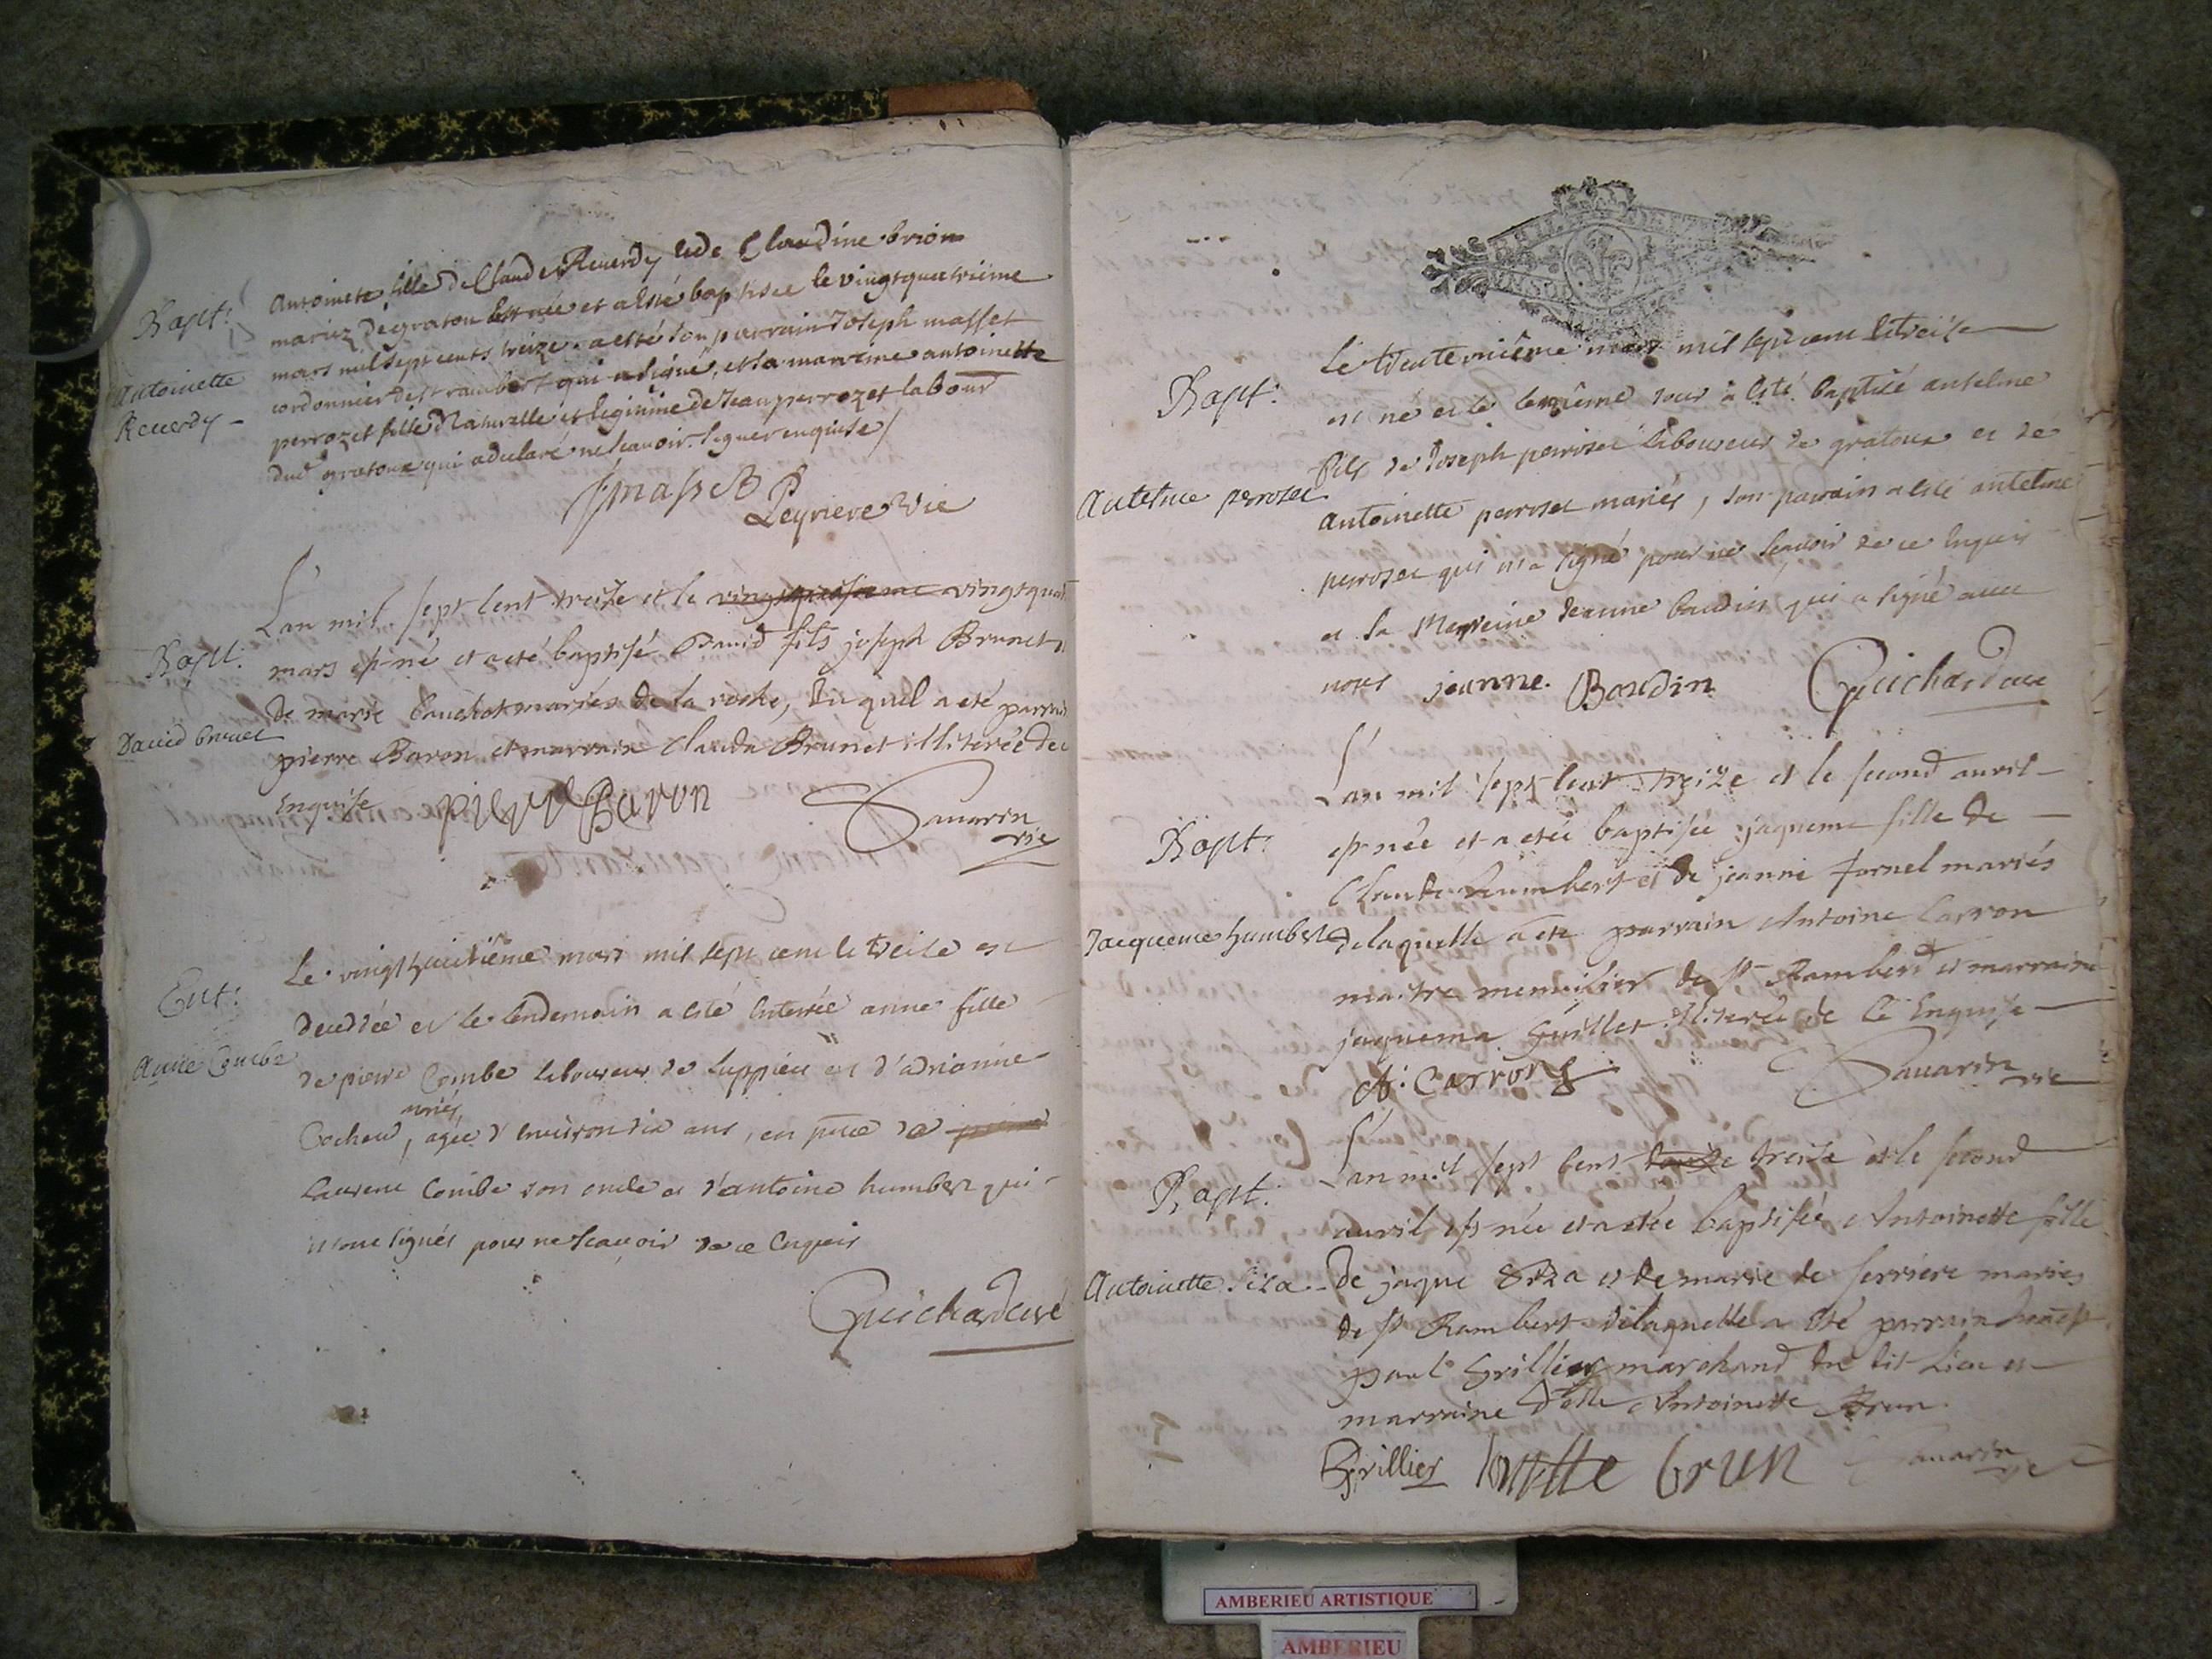 Bapt:
Antoinette
Reverdy
Antoinete fille de Claude Reverdy et de Claudine brion
mariez de graton est née et a esté baptisee le vingtquatrieme
mars mil sept cents treize. a esté son parrain Joseph masset
cordonnier de st rambert qui a signé, et sa marreme antoinette
perrozet fille Naturelle et legitime de Jean perrozet labour
dud gratoux qui a declaré ne scavoir signer enquise /
J masset
Peyrieve Vic
Bapt:
David brunet
L'an mil sept cent treize et le vingtquat
mars est né et a eté baptisé David fils joseph Brunet
de marie mariés de la roche, du quel a eté parrain
pierre Baron et marraine Clauda Brunet illiterée de
Enquise
pierre Baron
Savarin
vic
Ent:
Anne Combe
Le vingthuitième mars mil sept cent et treise est
decedée et le lendemain a esté enterrée anne fille
de pierre Combe laboureur de Suppieu et d'adrianne
mariés
Cochou, agée d'environ dix ans, en pñce de
Laurent Combe son oncle et d'antoine humbert qui
n'ont signés pour ne scavoir de ce enquis
Guichard curé
Bapt:
Antelme perrozet
Le trenteuniême mars mil sept cent et treise
est né et le même jour a esté baptisé antelme
fils de Joseph perroset laboureur de gratoux et de
antoinette perroset mariés, son parrain a esté antelme
perroset qui n'a signé pour ne scavoir de ce enquis
et sa Marreine Jeanne baudin qui a signé avec
nous
jeanne Baudin
Guichard curé
Bapt:
Jacqueme humbert
L'an mil sept cent treize et le second avril
est née et a etée baptisée jaqueme fille de
Claude humbert et de jeanne fornel mariés
delaquelle a eté parrain Antoine Carron
maitre menuisier de St Rambert et marraine
jaquema Guillet illiterée de ce Enquise
A. Carron
Savarin
vic
Bapt:
Antoinette Siza
L'an mil sept cent treize et le second
avril est née et a etée baptisée Antoinette fille
De jaque Siza et de marie de ferriere mariés
de St Rambert delaquelle a eté parrain honest
paul Grillier marchand du dit Lieu et
marraine Delle Antoinette Brun
Grillier
toinette brun
Savarin
vic
AMBERIEU ARTISTIQUE
AMBERIEU